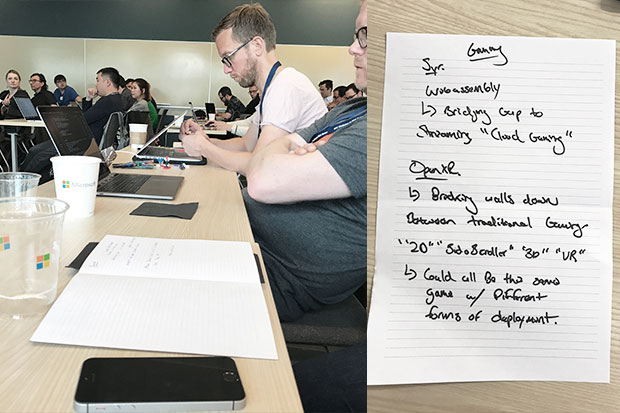 Microsoft
Gaming
5yr.
Webassembly
↳ Bridging Gap to
Streaming "Cloud Gaming"
OpenXR
↳ Breaking walls down
Between traditional Gaming
"2D" "Side Scroller" "3D" "VR"
↳ Could all Be the same
game w/ Different
forms of deployment.